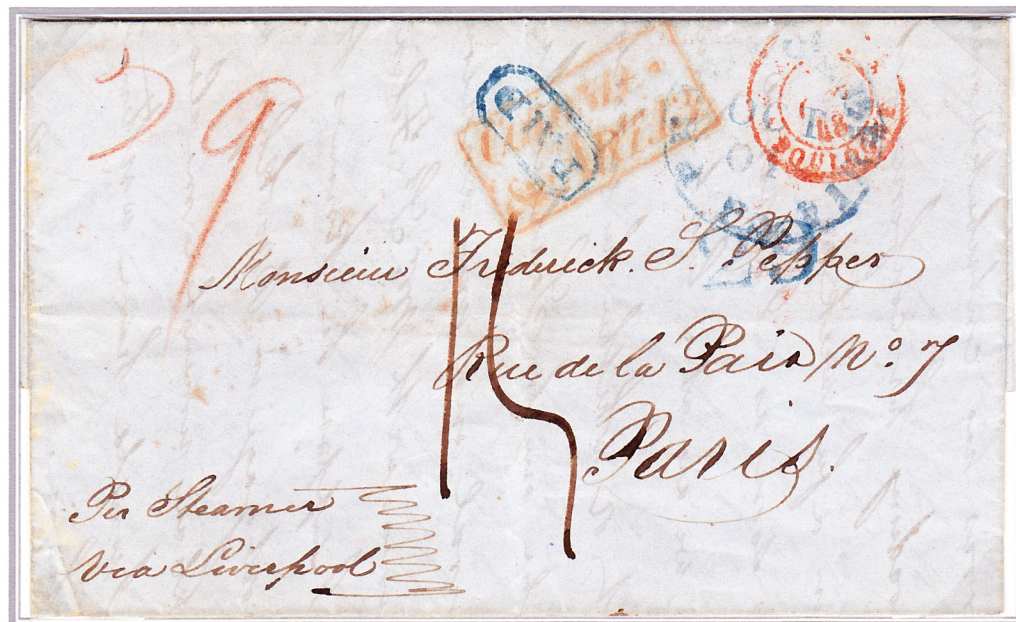 9
COLONIES
&c. ART. 13
PAID
OCT
BOULOGNE
20
Monsieur Frederick. S. Pepper
Rue de la Paix No. 7
Paris.
15
Per Steamer
via Liverpool